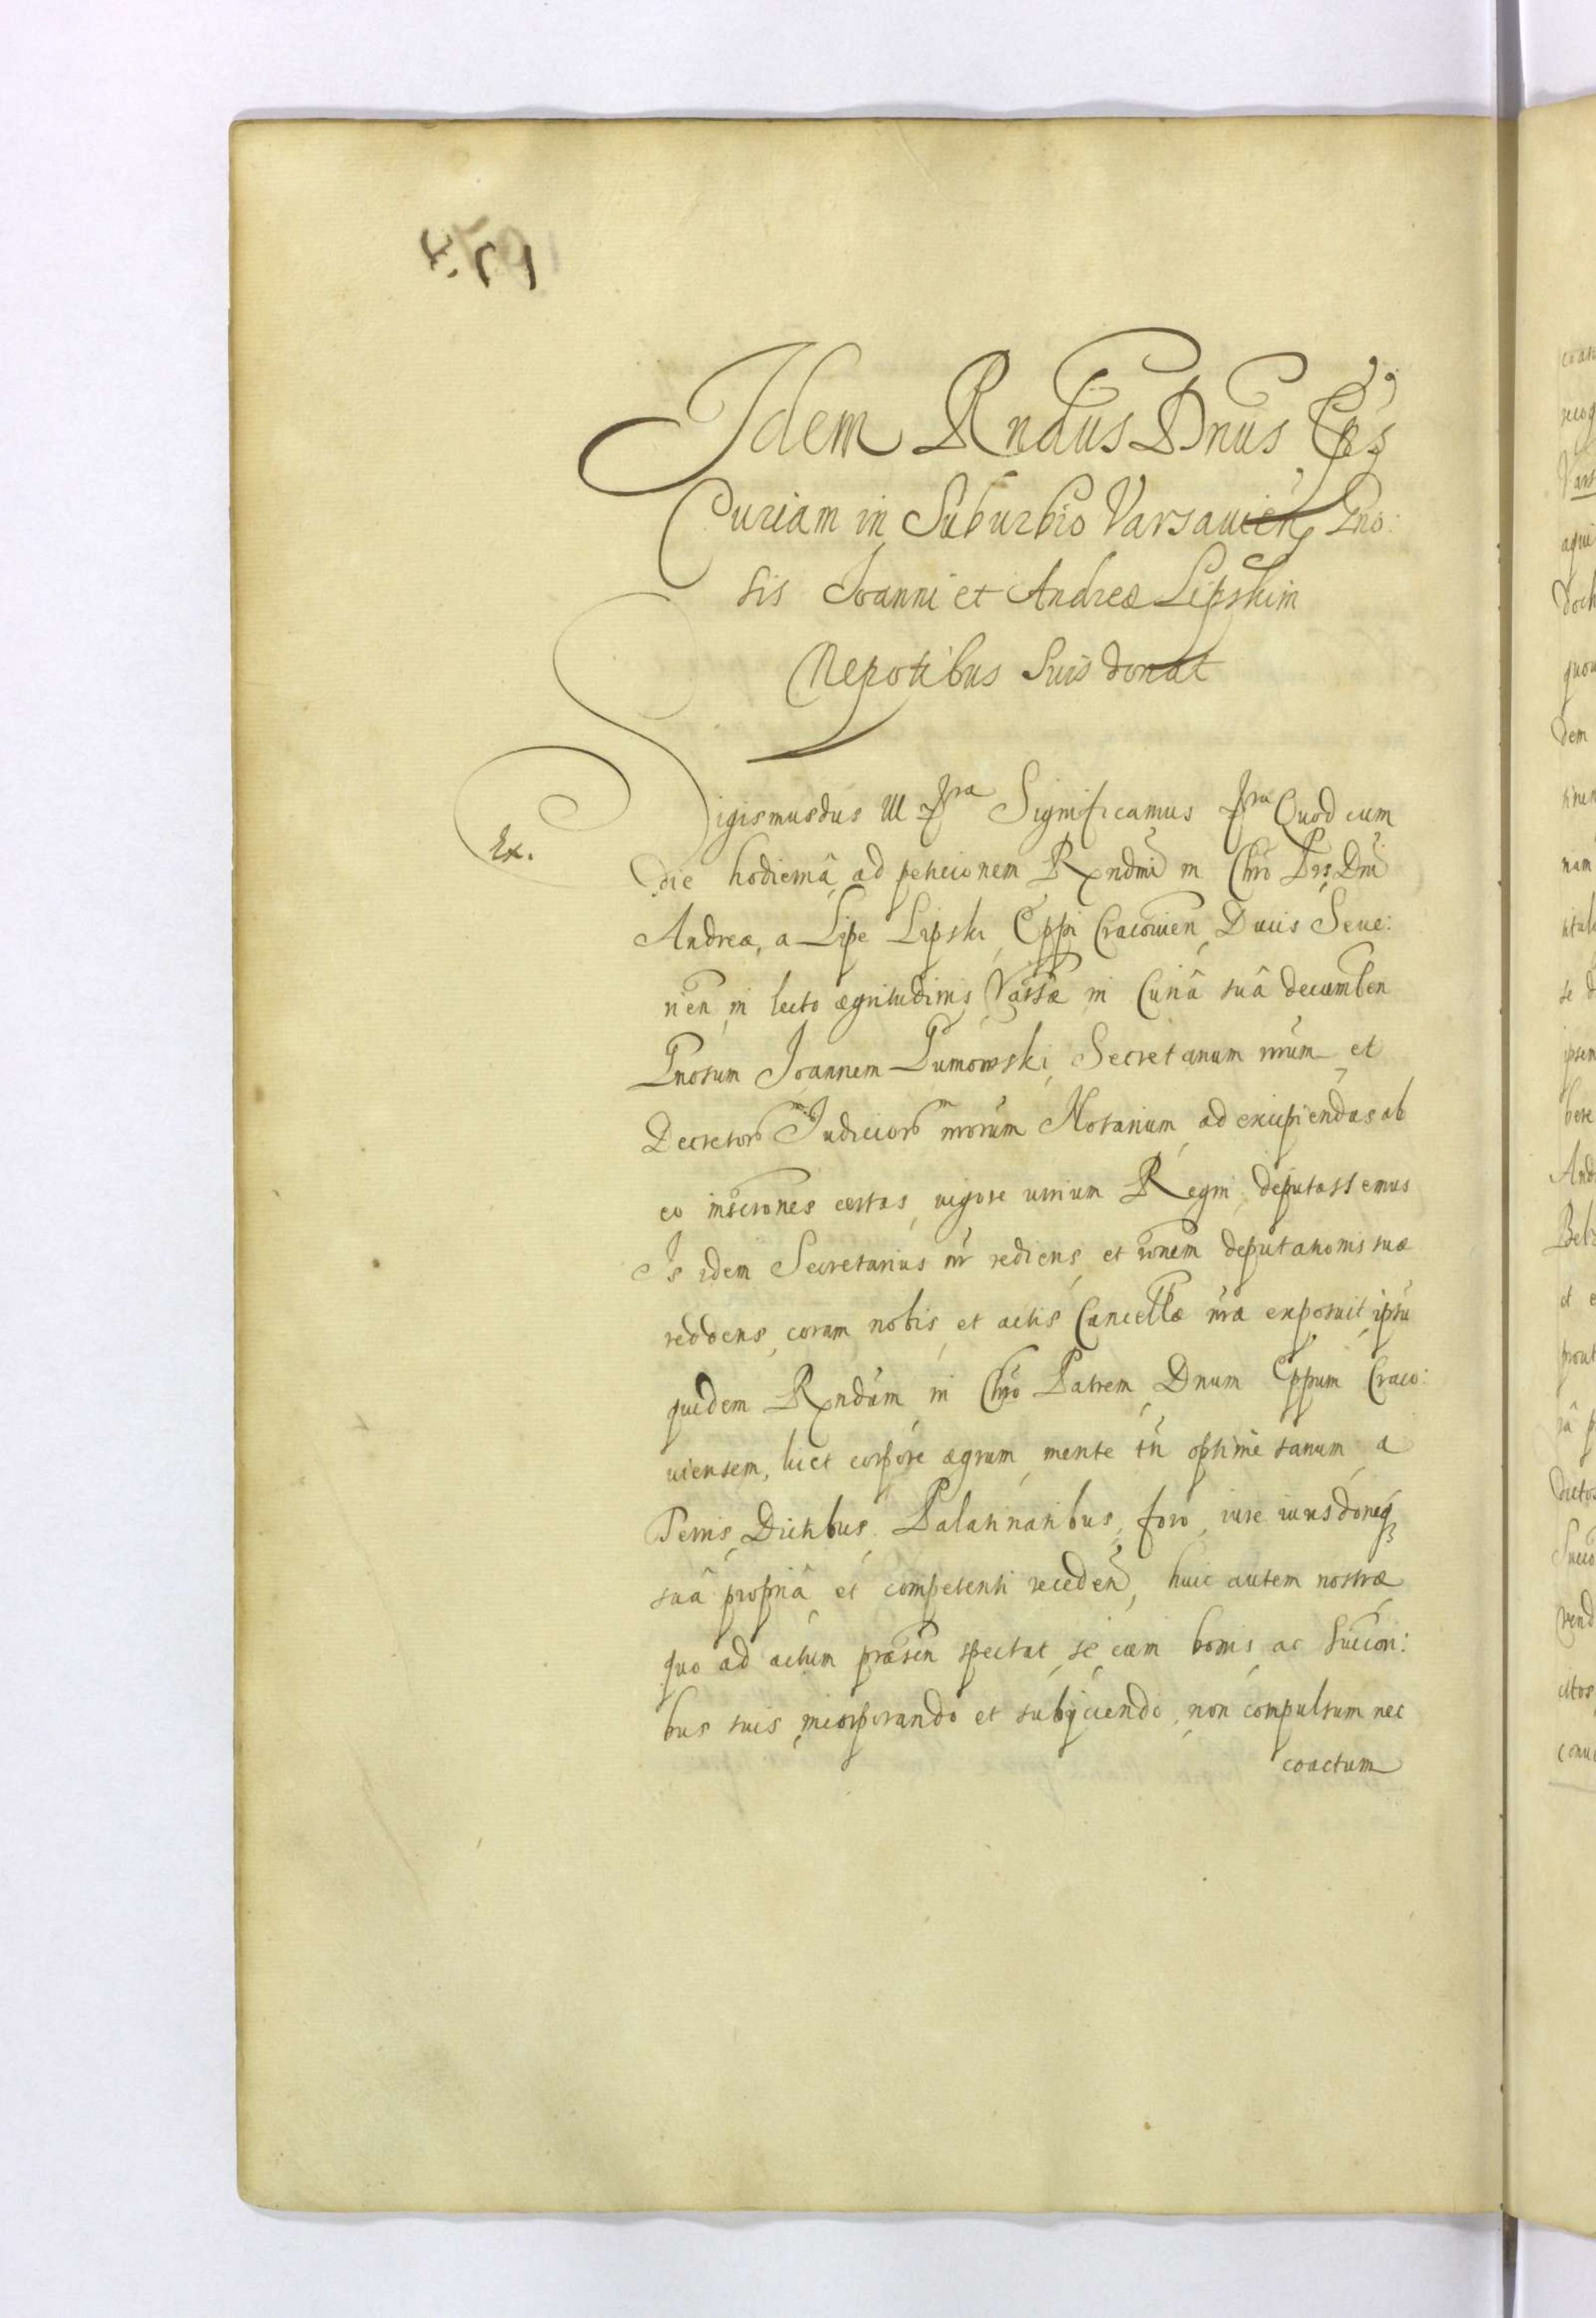 Idem Rndus Dnus Eps
Curiam in Suburbio Varsavien Gno:
sis Joanni et Andreæ Lipskim
Nepotibus Suis donat
Sigismusdus III Significamus Quod cum
Ex.
die hodiernâ ad peticionem Rxndmi in Chro Pris Dni
Andreæ, a Lipe Lipski Eppi Cracovien, Ducis Seue:
rien, in lecto ægritudinis Varsæ in Curiâ suâ decumben
Gnosum Joannem Secretarium nrum et
Decretorum Judiciorum nrorum Notarium ad excipiendas ab
eo inscrones certas, vigore iurium Regni, deputassemus
Is idem Secretarius nr rediens, et ronem deputationis suæ
reddens, coram nobis, et actis Cancellæ nræ exposuit, ipsu
quidem Rxndum in Chro Patrem Dnum Eppum Craco:
uiensem, licet corpore ægrum, mente tn optime sanum, a
Terris, Dictibus, Palatinatibus, foro, iure iurisdoneq
suâ propriâ et competenti receden, huic autem nostræ
quo ad actum præsen spectat, se cum bonis ac succon:
bus suis, incorporando et subijciendo, non compulsum nec
coactum